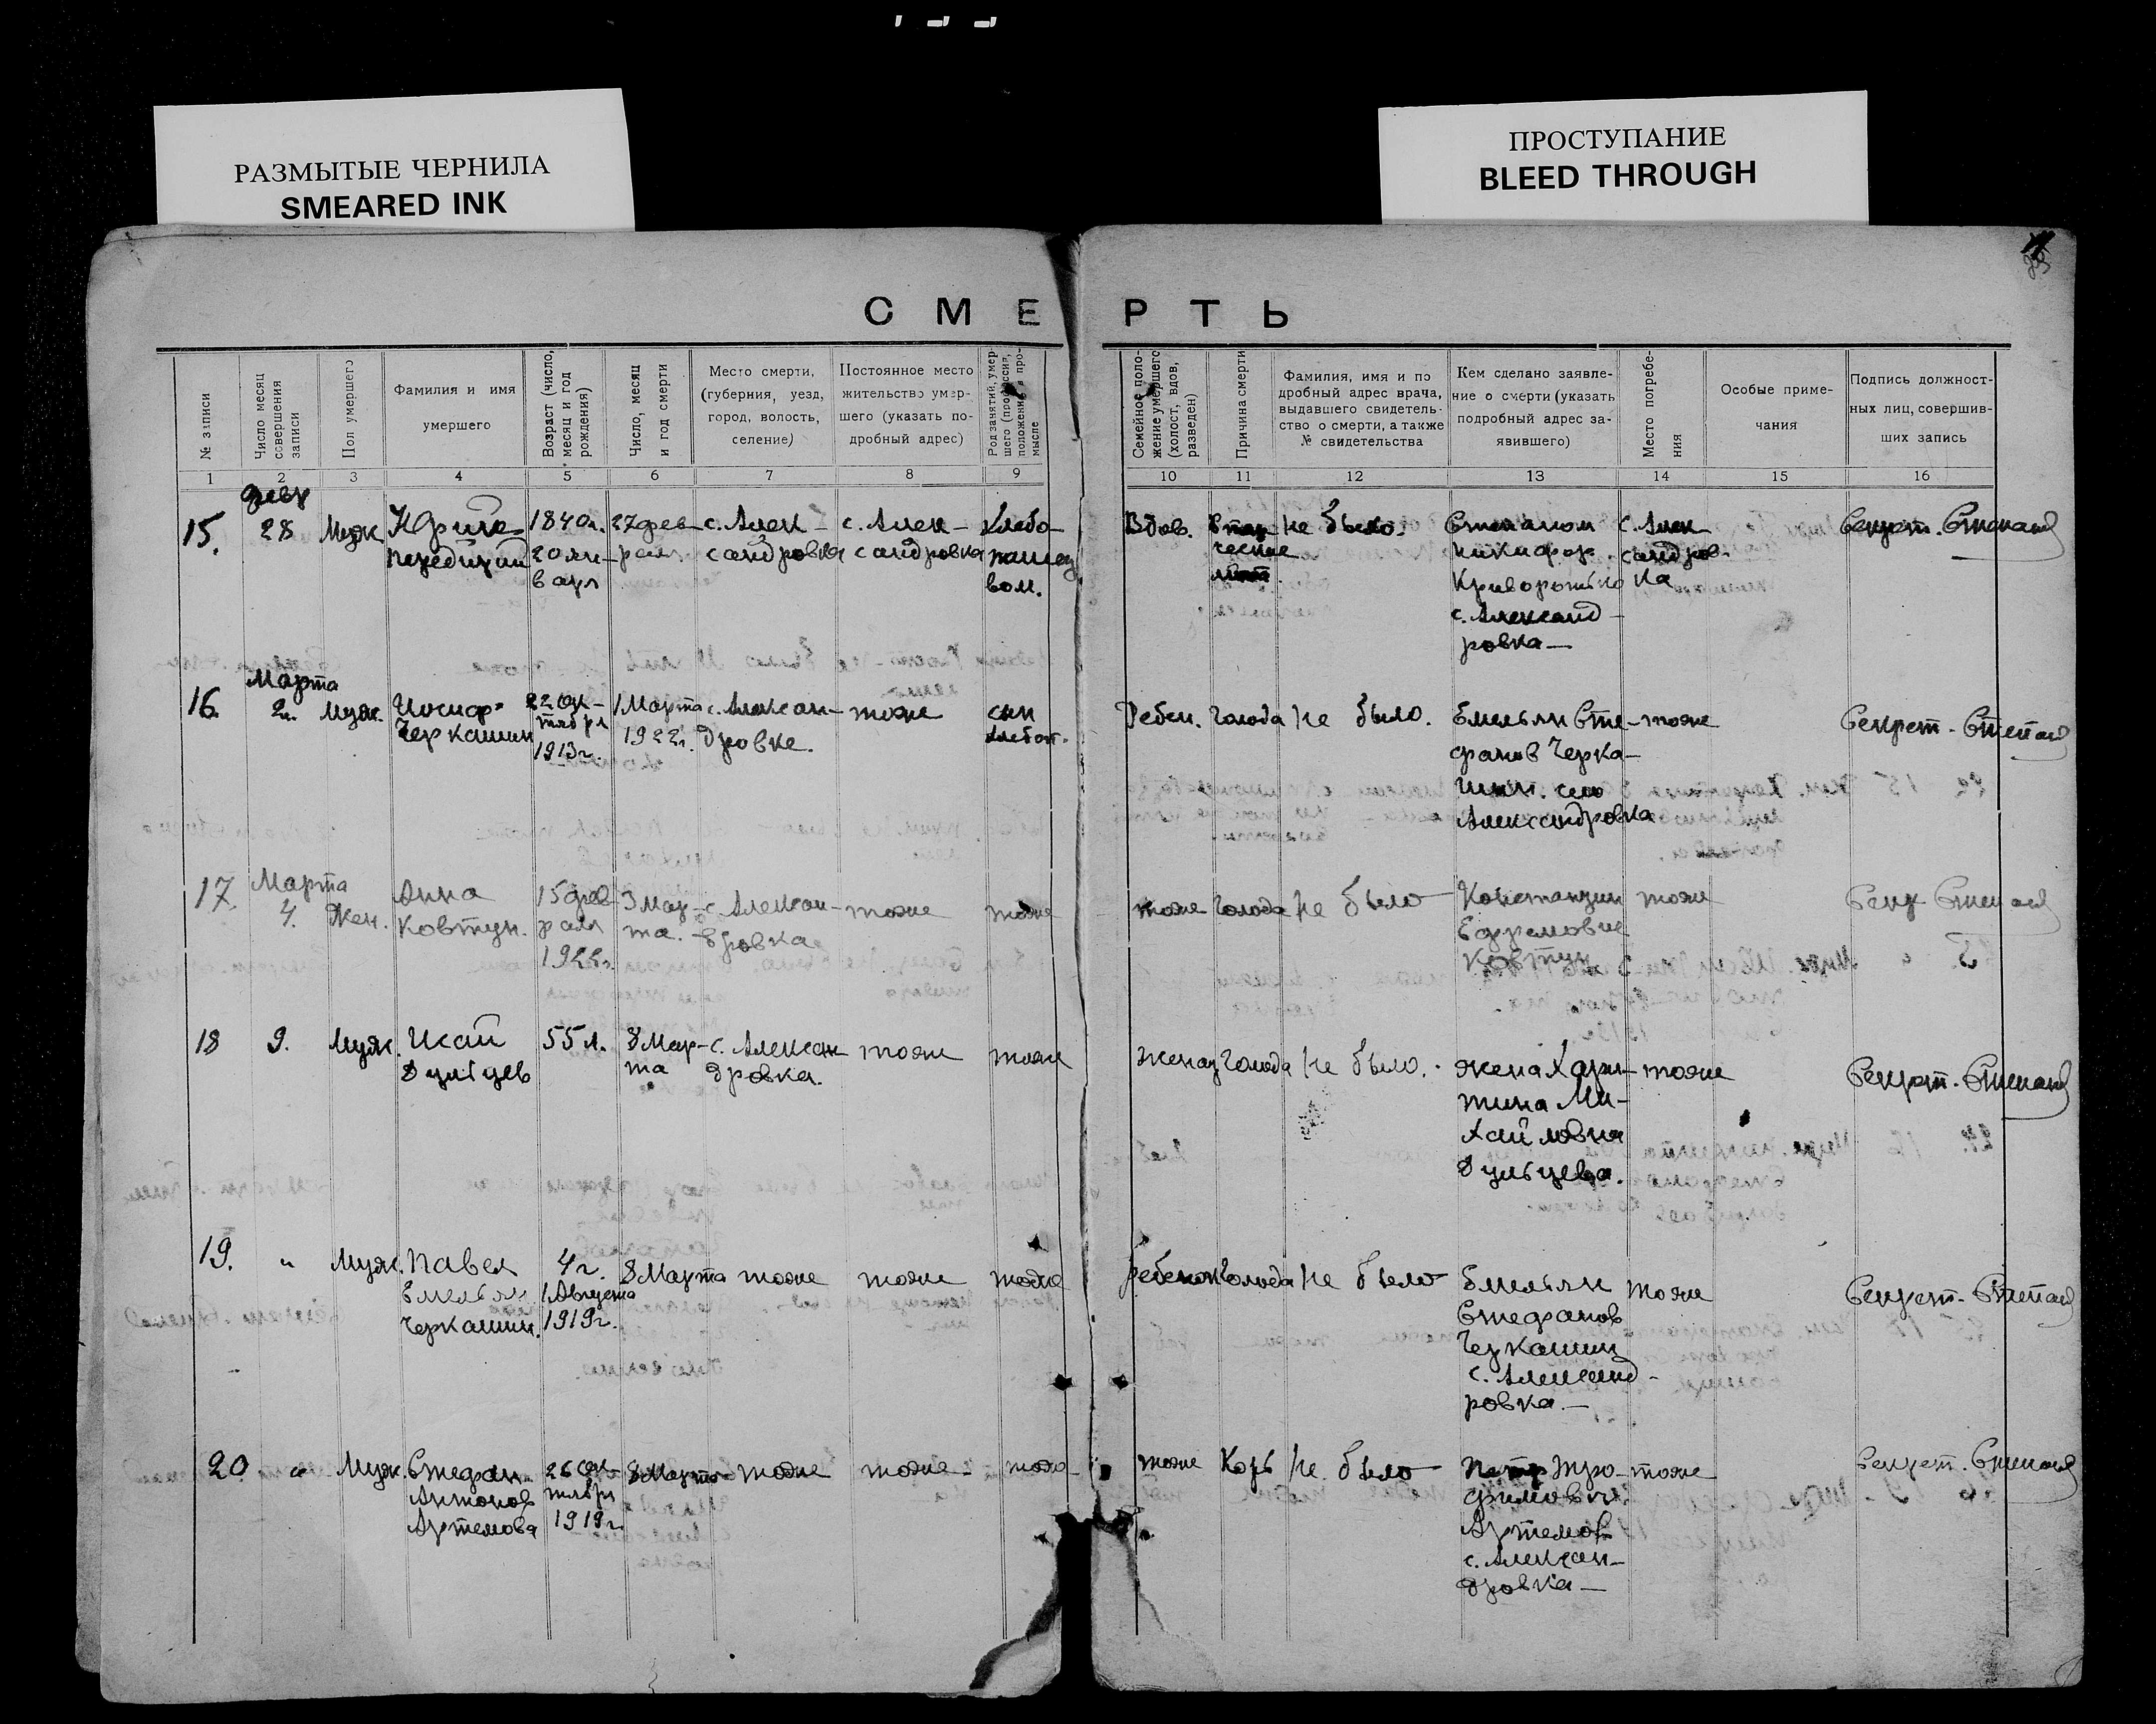 РАЗМЫТЫЕ ЧЕРНИЛА
SMEARED INK
ПРОСТУПАНИЕ
BLEED THROUGH
СМЕРТЬ
№ записи
Число месяц
совершения
записи
Пол умершего
Фамилия и имя
умершего
Возраст (число,
месяц и год
рождения)
Число, месяц
и год смерти
Место смерти,
(губерния, уезд,
город, волость,
селение)
Постоянное место
жительство умер-
шего (указать по-
дробный адрес)
Род занятий, умер-
шего (профессия,
положение в про-
мысле
Семейное поло-
жение умершего
(холост, вдов,
разведен)
Причина смерти
Фамилия, имя и по
дробный адрес врача,
выдавшего свидетель-
ство о смерти, а также
№ свидетельства
Кем сделано заявле-
ние о смерти (указать
подробный адрес за-
явившего)
Место погребе-
ния
Особые приме-
чания
Подпись должност-
ных лиц, совершив-
ших запись
1 2 3 4 5 6 7 8 9 10 11 12 13 14 15 16
15.
28
Муж
1840г.
20 ян-
варя
27 фев-
раля.
с. Алек-
сандровка
с. Алек-
сандровка
Хлебо-
пашец
Вдов.
не было.
Степаном
Никифор.
Криворотько
с. Александ-
ровка—
с. Алек
сандров-
ка
Секрет. Степанов
16.
Марта
2.
Муж.
Иосиф
Черкашин
22 ок-
тября
1913г.
1 Марта
1922г.
с. Алексан-
дровке.
тоже
сын
хлебоп.
Ребен.
Голода
не было.
Емельян Сте-
фанов Черка-
шин. село
Александровка
тоже
Секрет. Степанов
17.
Марта
4.
Жен.
Анна
Ковтун.
15 фев
раля
1922г.
3 Мар-
та.
с. Алексан-
дровка
тоже
тоже
тоже
Голода
не было
Константин
Ефремович
Ковтун
тоже
Секр Степанов
18
9.
Муж.
Исай
Дульцев
55 л.
8 Мар-
та
с. Алексан
дровка.
тоже
тоже
Женат
Голода
не было.
жена Хари-
тина Ми-
хайловна
Дульцева.
тоже
Секрет. Степанов
19.
"
Муж.
Павел
Емельян.
Черкашин.
4 г.
1 Августа
1919г.
8 Марта
тоже
тоже
тоже
ребенок
Голода
не было
Емельян
Стефанов
Черкашин
с. Александ-
ровка.—
тоже
Секрет. Степанов
20
"
Муж.
Стефан
Антонов
Артемова
26 ок-
тября
1919г.
8 Марта
тоже
тоже
тоже
тоже
Корь
не было
Петр Тро-
фимович
Артемов
с. Алексан-
дровка—
тоже
Секрет. Степанов